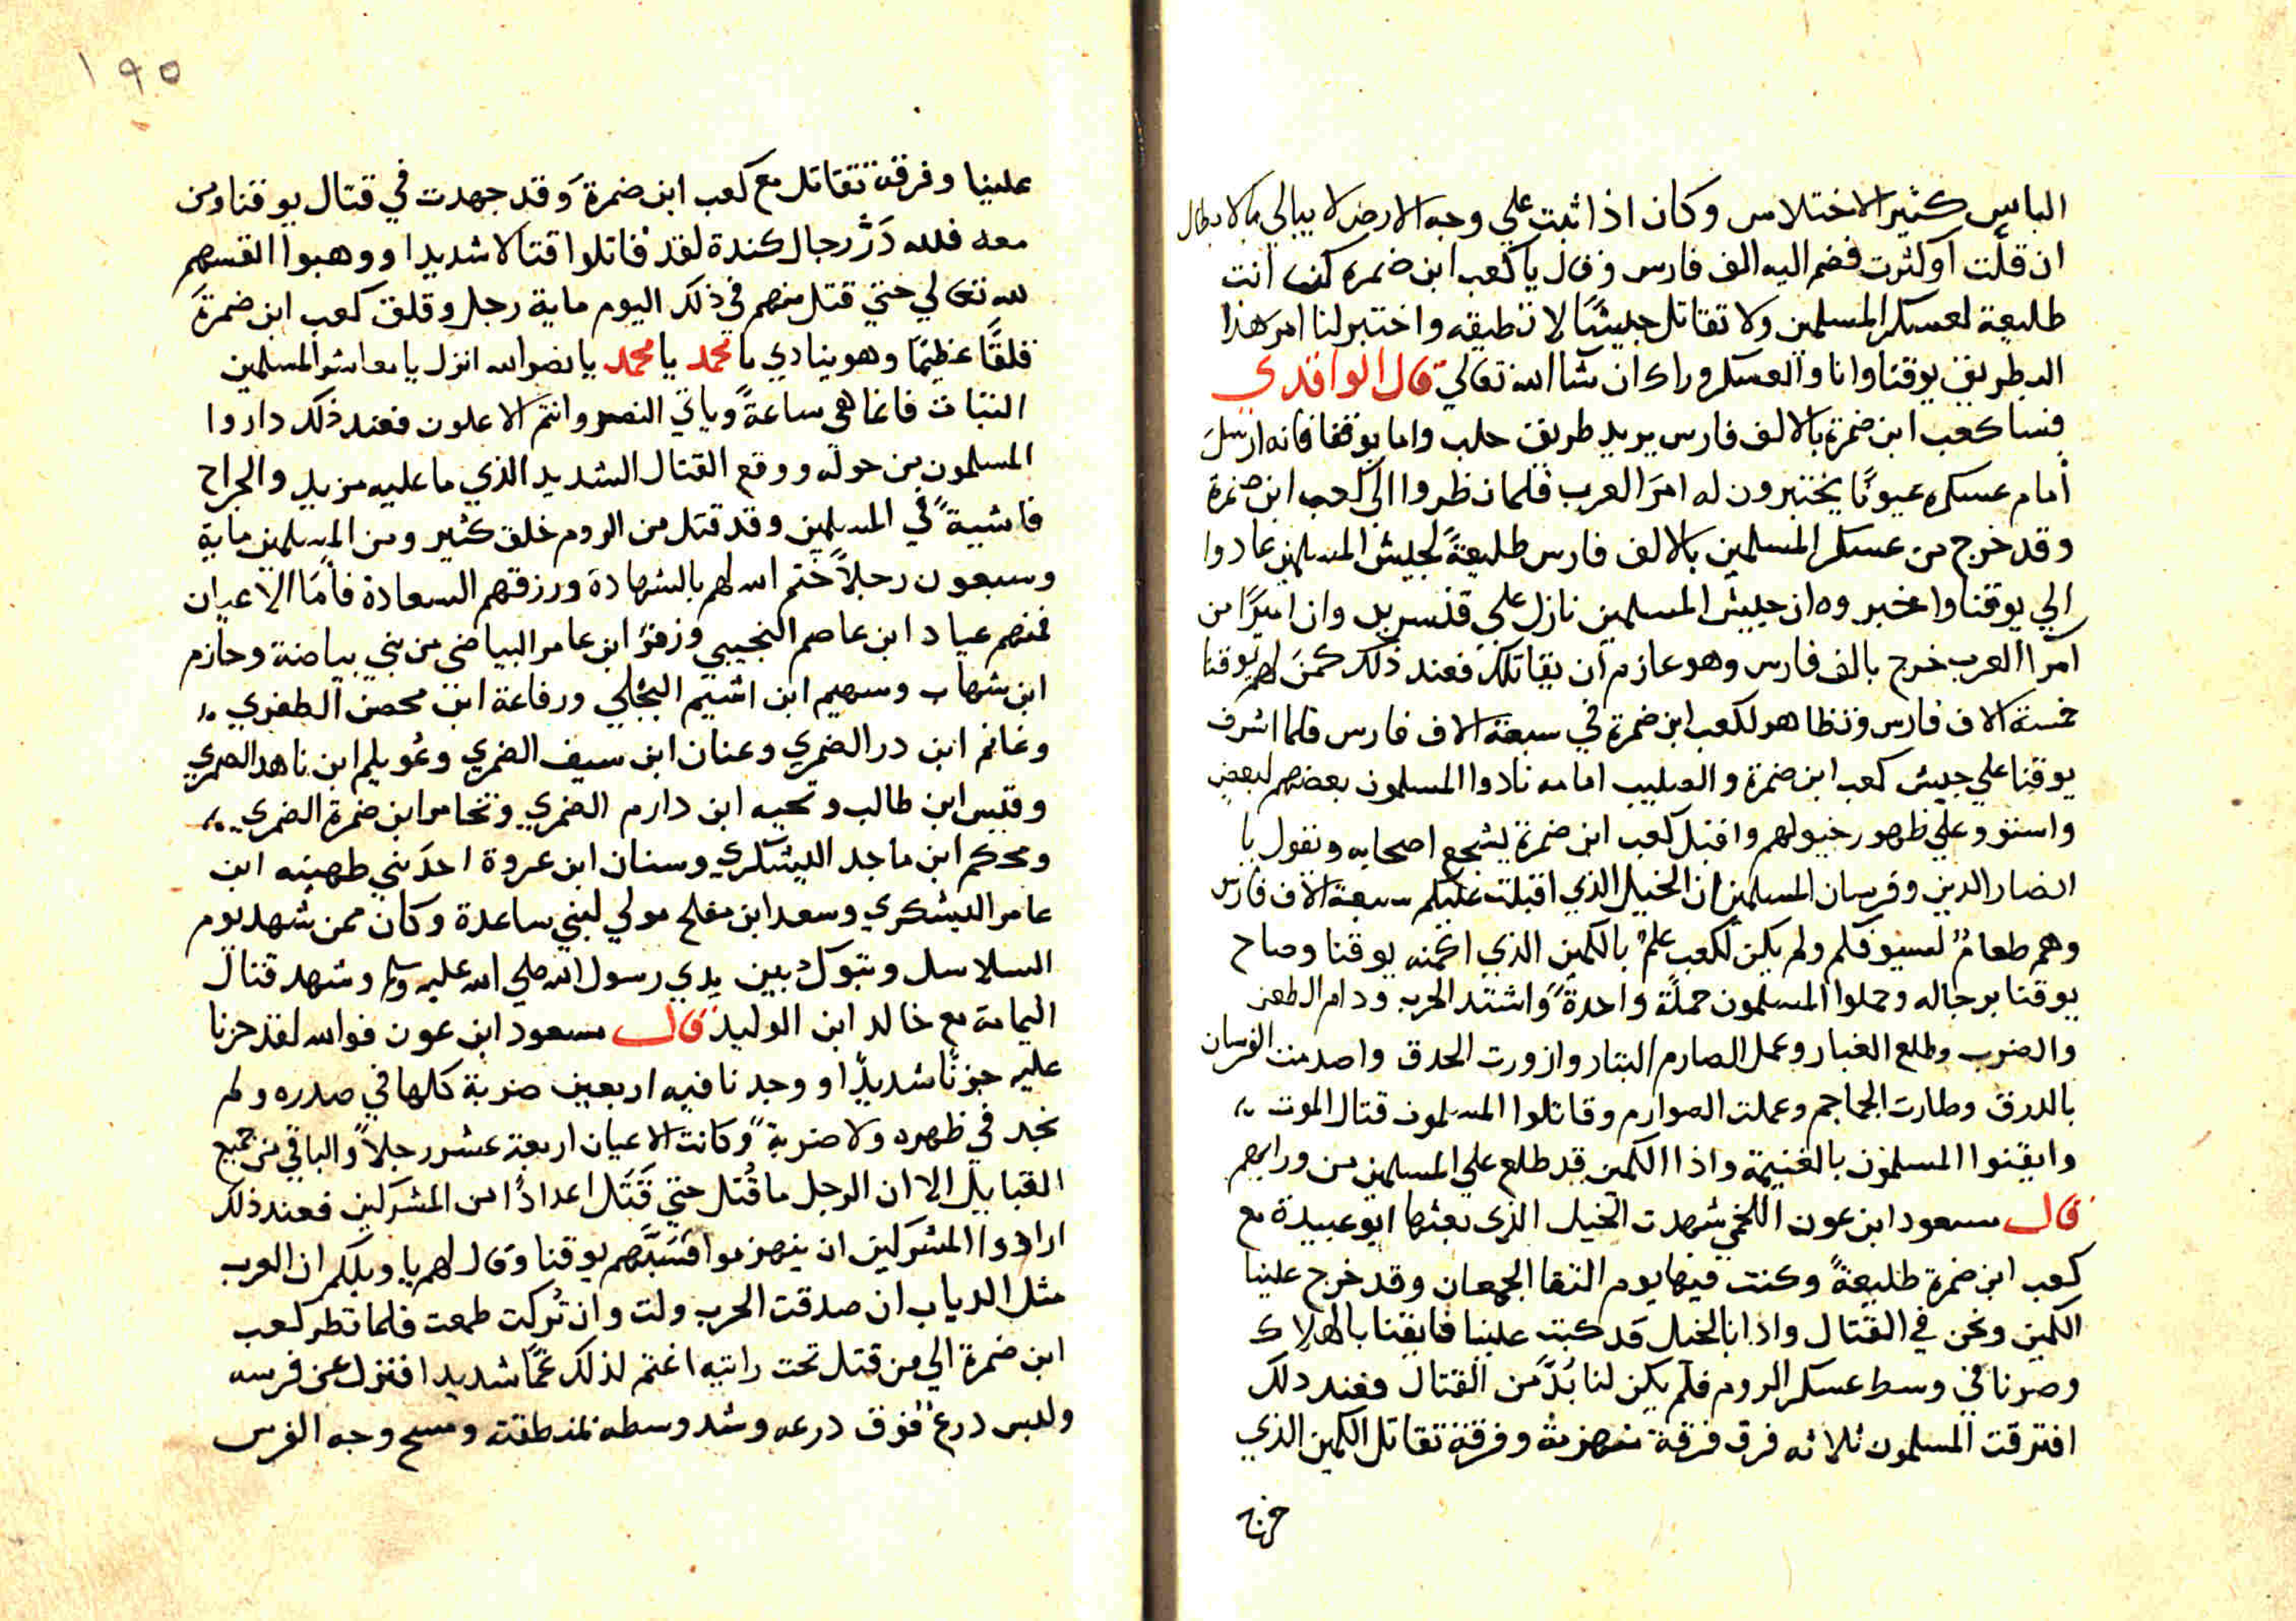 الباس كثير الاختلاس وكان اذا ثبت علي وجه الارض لا يبالي بالابطال
ان قلّت أو كثرت فضم اليه الف فارس وقال يا كعب ابن ضمره كن انت
طليعة لعسكر المسلمين ولا تقاتل جيشًا لا تطيقه واختبر لنا امر هذا
البطريق يوقنا وانا والعسكر وراك ان شا الله تعالي قال الواقدي
فسا كعب ابن ضمرة بالالف فارس يريد طريق حلب واما يوقنا فانه ارسل
أمام عسكره عيونًا يختبرون له امرَ العرب فلما نظروا الي كعب ابن ضمرة
وقد خرج من عسكر المسلمين بالالف فارس طليعةً لجيش المسلمين عادوا
الي يوقنا واخبروه ان جيش المسلمين نازل علي قنسرين وان اميرًا من
آمرا العرب خرج بالف فارس وهو عازم ان يقاتلك فعند ذلك كمنَ لهم يوقنا
خمسة الاف فارس وتظاهر لكعب ابن ضمرة في سبعة الاف فارس فلما اشرف
يوقنا علي جيش كعب ابن ضمرة والصليب امامه نادوا المسلمون بعضهم لبعض
واستووعلي ظهور خيولهم واقبل كعب ابن ضمرة يشجع اصحابه ونقول يا
انصار الدين وفرسان المسلمين ان الخيل الذي اقبلت عليكم سبعة الاف فارس
وهم طعامٌ لسيوفكم ولم يكن لكعب علمٌ بالكمين الذي اكمنه يوقنا وصاح
يوقنا برجاله وحملوا المسلمون حملةً واحدةً واشتد الحرب ودام الطعن
والضرب وطلع الغبار وعمل الصارم البتار وازورت الحدق واصدمت الفرسان
بالدرق وطارت الجماجم وعملت الصوارم وقاتلوا المسلمون قتال الموت
وايقنوا المسلمون بالغنيمة واذا الكمين قد طلع علي المسلمين من ورايهم
قال مسعود ابن عون اللخمي شهدت الخيل الذي بعثها ابو عبيدة مع
كعب ابن ضمرة طليعةً وكنت فيها يوم التقا الجمعان وقد خرج علينا
الكمين ونحن في القتال واذا بالخيل قد كبت علينا فايقنا بالهلاك
وصرنا في وسط عسكر الروم فلم يكن لنا بُدٌّ من القتال فعند دلك
افترقت المسلمون ثلاثه فرق فرقة منهزمة وفرقة تقاتل الكمين الذي
خرج
١٩٥
علينا وفرقة تقاتل مع كعب ابن ضمرة وقد جهدت في قتال يوقنا ومن
معه فلله دَرّ رجال كندة لقد قاتلوا قتالا شديدا ووهبوا انفسهم
لله تعالي حتي قتل منهم في ذلك اليوم ماية رجل وقلق كعب ابن ضمرةَ
قلقًا عظيمًا وهو ينادي يا محمد يا محمد يا نصر الله انزل يا معاشر المسلمين
الثبات فانما هي ساعةً وياتي النصر وانتم الاعلون فعند ذلك داروا
المسلمون من حوله ووقع القتال الشديد الذي ما عليه مزيد والجراح
فاشيةً في المسلمين وقد قتل من الروم خلق كثير ومن المسلمين ماية
وسبعون رجلاً ختم الله لهم بالشهادة ورزقهم السعادة فأمّا الاعيان
فمنهم عباد ابن عاصم النجيبي وزفر ابن عامر البياضي من بني بياضة وحازم
ابن شهاب وسهيم ابن اشيم البجلي ورفاعة ابن محصن الطفري
وغانم ابن در الضمري وعنان ابن سيف الضمري وعُويلم ابن ناهد الضمري
وقيس ابن طالب و ابن دارم الضمري و ابن ضمرة الضمري
ومحكم ابن ماجد اليشكري وسنان ابن عروة احدَ بني طهينه ابن
عامر اليشكري وسعد ابن مفلح مولي لبني ساعدة وكان ممن شهد يوم
السلاسل وتبوك بين يدي رسول الله صلي الله عليه وسلم وشهد قتال
اليمامة مع خالد ابن الوليد قال مسعود ابن عون فوالله لقد حزنا
عليه حزنًا شديدًا ووجدنا فيه اربعين ضربة كلها في صدره ولم
نجد في ظهره ولا ضربةً وكانت الاعيان اربعة عشر رجلاً والباقي من جميع
القبايل الا ان الرجل ما قُتل حتي قَتَل اعدادًا من المشركين فعند ذلك
ارادوا المشركين ان ينهزموا فسَبَّهم يوقنا وقال لهم يا ويلكم ان العرب
مثل الدياب ان صدقت الحرب ولت وان تُركت طمعت فلما نظر كعب
ابن ضمرة الي من قتل تحت رايته اغتم لذلك غمًّا شديدا فنزل عن فرسه
ولبس درعٌ فوق درعه وشد وسطه بمنطقته ومسح وجه الفرس